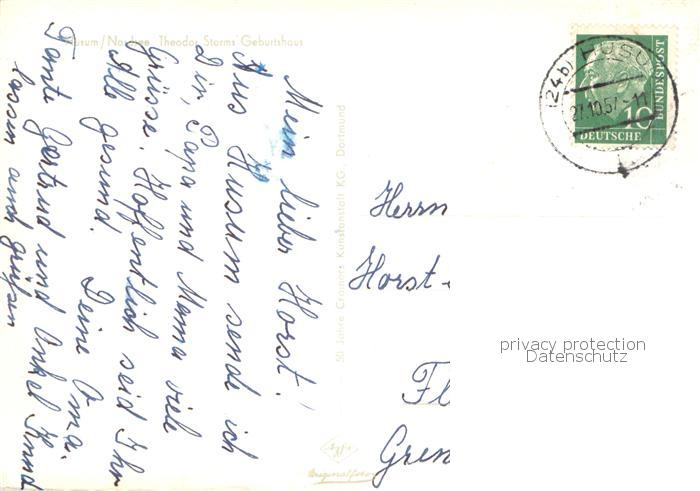 Husum/Nordsee Theodor Storms Geburtshaus
Mein lieber Horst!
Aus Husum sende ich
Dir, Papa und Mama viele
Grüsse. Hoffentlich seid Ihr
Alle gesund. Deine Oma.
Tante Gertrud und Onkel
lassen auch grüßen
50 Jahre Cramers Kunstanstalt KG., Dortmund
Agfa
Originalfoto
(24b) HUSU
27.10.57.-11
10
DEUTSCHE
BUNDESPOST
Herrn
Horst-
Fl
Gren
privacy protection
Datenschutz